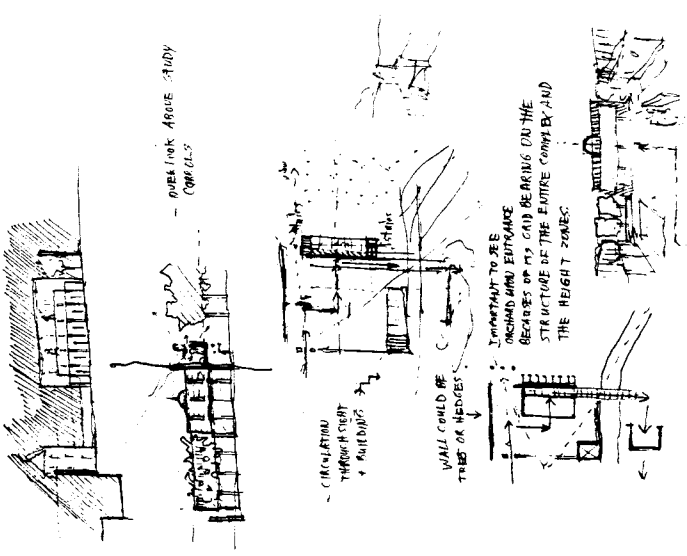 - OVERLOOK ABOVE STUDY
CARRELS
stairs
stairs
- CIRCULATION
THROUGH SIGHT
+ BUILDING
WALL COULD BE
TREES OR HEDGES
IMPORTANT TO SEE
ORCHARD UPON ENTRANCE
BECAUSE OF ITS GRID BEARING ON THE
STRUCTURE OF THE ENTIRE COMPLEX AND
THE HEIGHT ZONES